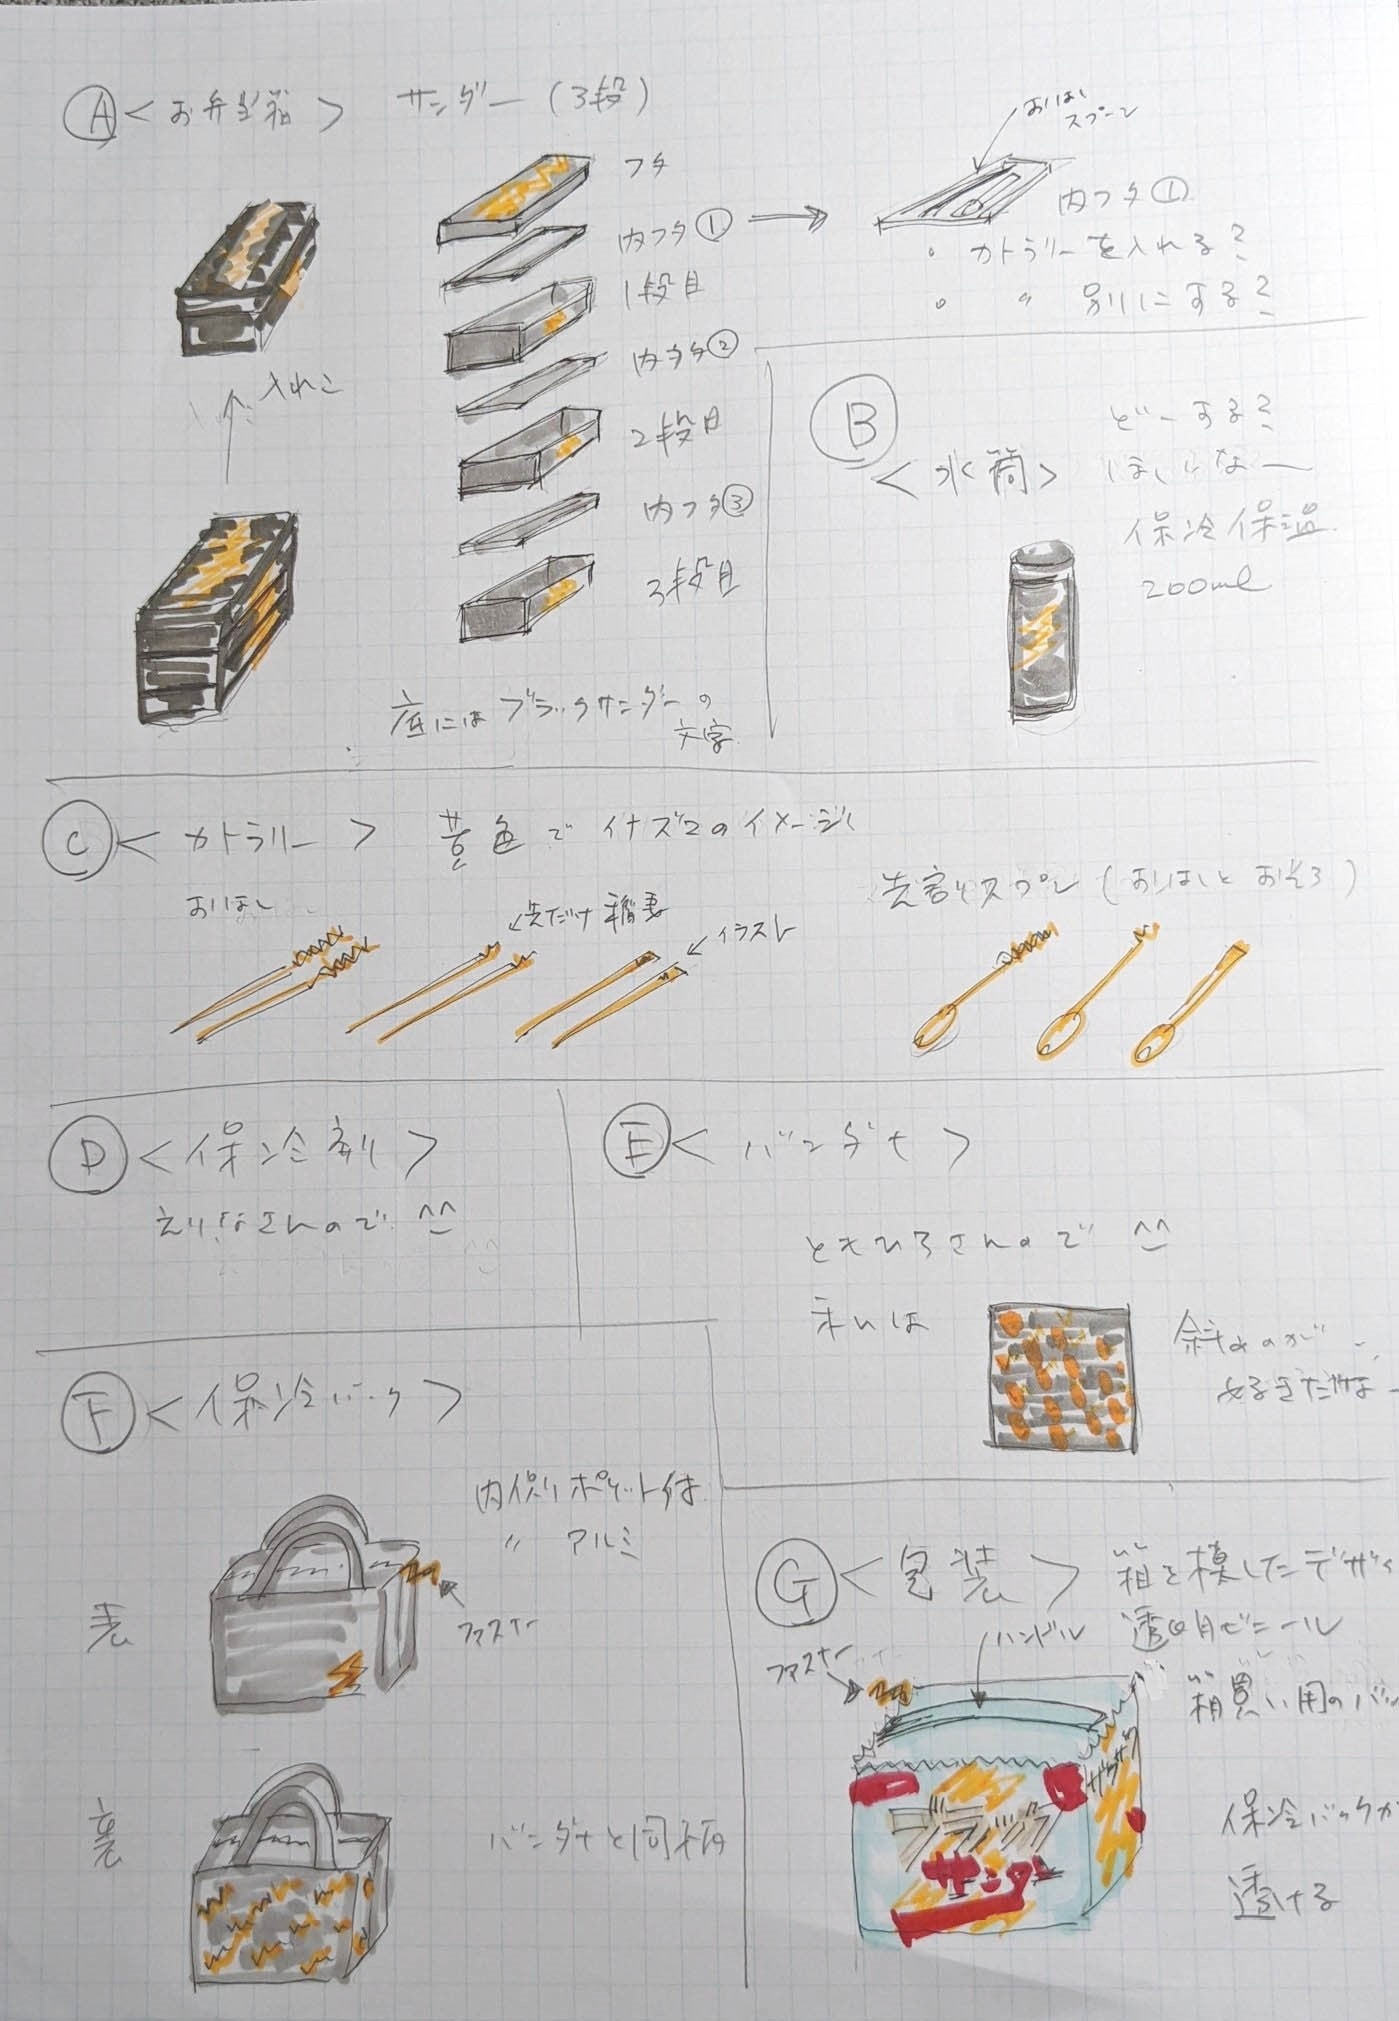 Ⓐ<お弁当箱> サンダー(3段)
フタ
内フタ①
1段目
内フタ②
2段目
内フタ③
3段目
入れこ
底にはブラックサンダーの
文字
おはし
スプーン
内フタ①
・カトラリーを入れる?
・ 〃 別にする?
Ⓑ
<水筒>
どーする?
ほしいなー
保冷保温
200ml
Ⓒ<カトラリー> 黄色でイナズマのイメージ
おはし
先だけ稲妻
イラスト
先割れスプーン(おはしとおそろ)
Ⓓ<保冷剤>
えりなさんので ^^
Ⓔ<バンダナ>
ともひろさんので ^^
私は
斜めのが
好きだなー
Ⓕ<保冷バック>
内側ポケット付
〃 アルミ
表
ファスナー
裏
バンダナと同柄
Ⓖ<包装> 箱を模したデザイ
透明ビニール
ファスナー
ハンドル
箱買い用のバッ
ザクザク
ブラック
サンダー
保冷バックが
透ける